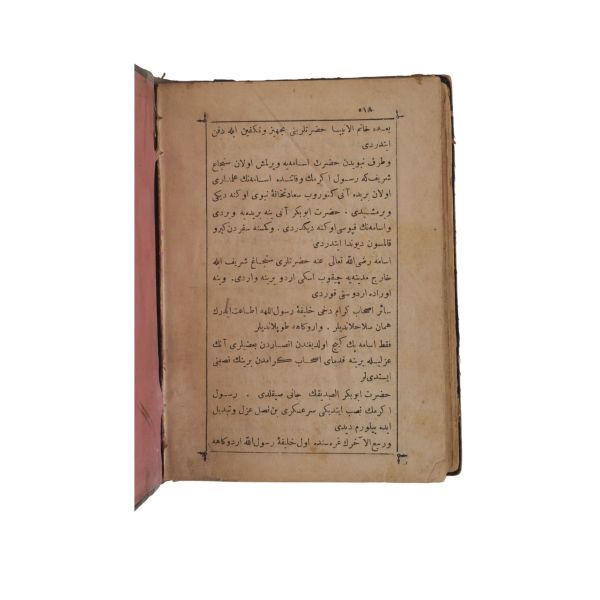 ٥١٨
بعده خاتم الانبیا حضرتلرینی تجهیز و تکفین ایله دفن
ایتدردی
و طرف نبویدن حضرت اسامه‌یه ویرلمش اولان سنجاغ
شریف که رسول اکرمك وفاتنده اسامه‌نك علمداری
اولان بریده آنی کتوروب سعادتخانهٔ نبوی اوکنه دیکی
ویرمشیدی . حضرت ابوبکر آنی ینه بریده‌یه ویردی
و اسامه‌نك قپوسی اوکنه دیکدردی . و کمسنه سفردن کیرو
قالمسون دیو ندا ایتدردی
اسامه رضی الله تعالی عنه حضرتلری سنجاغ شریف ایله
خارج مدینه‌یه چیقوب اسکی اردو یرینه واردی . و ینه
اوراده اردوسنی قوردی
سائر اصحاب کرام دخی خلیفهٔ رسول اللهه اطاعت ایدرك
همان سلاحلاندیلر . و اردوکاهه طوپلاندیلر
فقط اسامه پك کنج اولدیغندن انصاردن بعضیلری آنك
عزلیله یرینه قدمای اصحاب کرامدن برینك نصبنی
ایستدیلر
حضرت ابوبکر الصدیقك جانی صیقلدی . رسول
اکرمك نصب ایتدیکی سرعسکری بن نصل عزل و تبدیل
ایده بیلورم دیدی
و ربیع الآخرك غره‌سنده اول خلیفهٔ رسول الله اردوکاهه